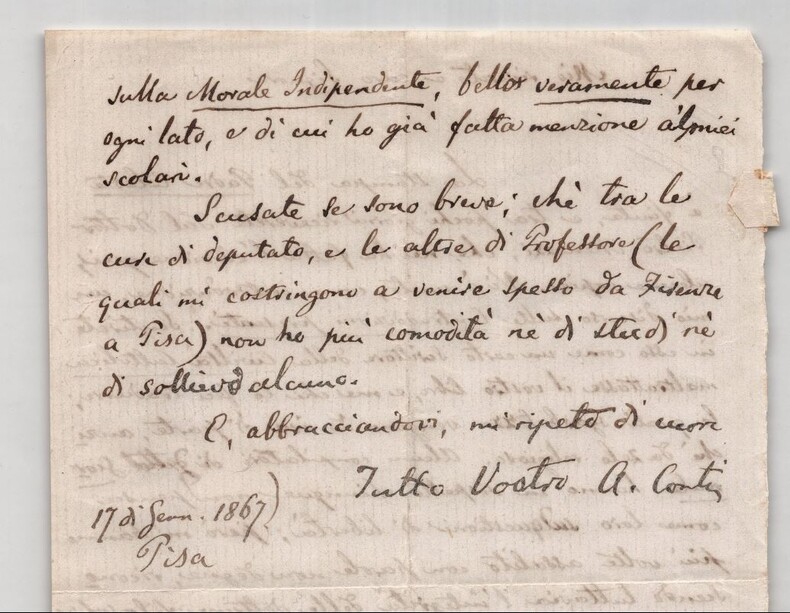 sulla Morale Indipendente, bello veramente per
ogni lato, e di cui ho già fatta menzione a' miei
scolari.
Scusate se sono breve; chè tra le
cure di deputato, e le altre di Professore (le
quali mi costringono a venire spesso da Firenze
a Pisa) non ho più comodità nè di studi nè
di sollievo alcuno.
E, abbracciandovi, mi ripeto di cuore
Tutto Vostro A. Conti
17 di Genn. 1867)
Pisa